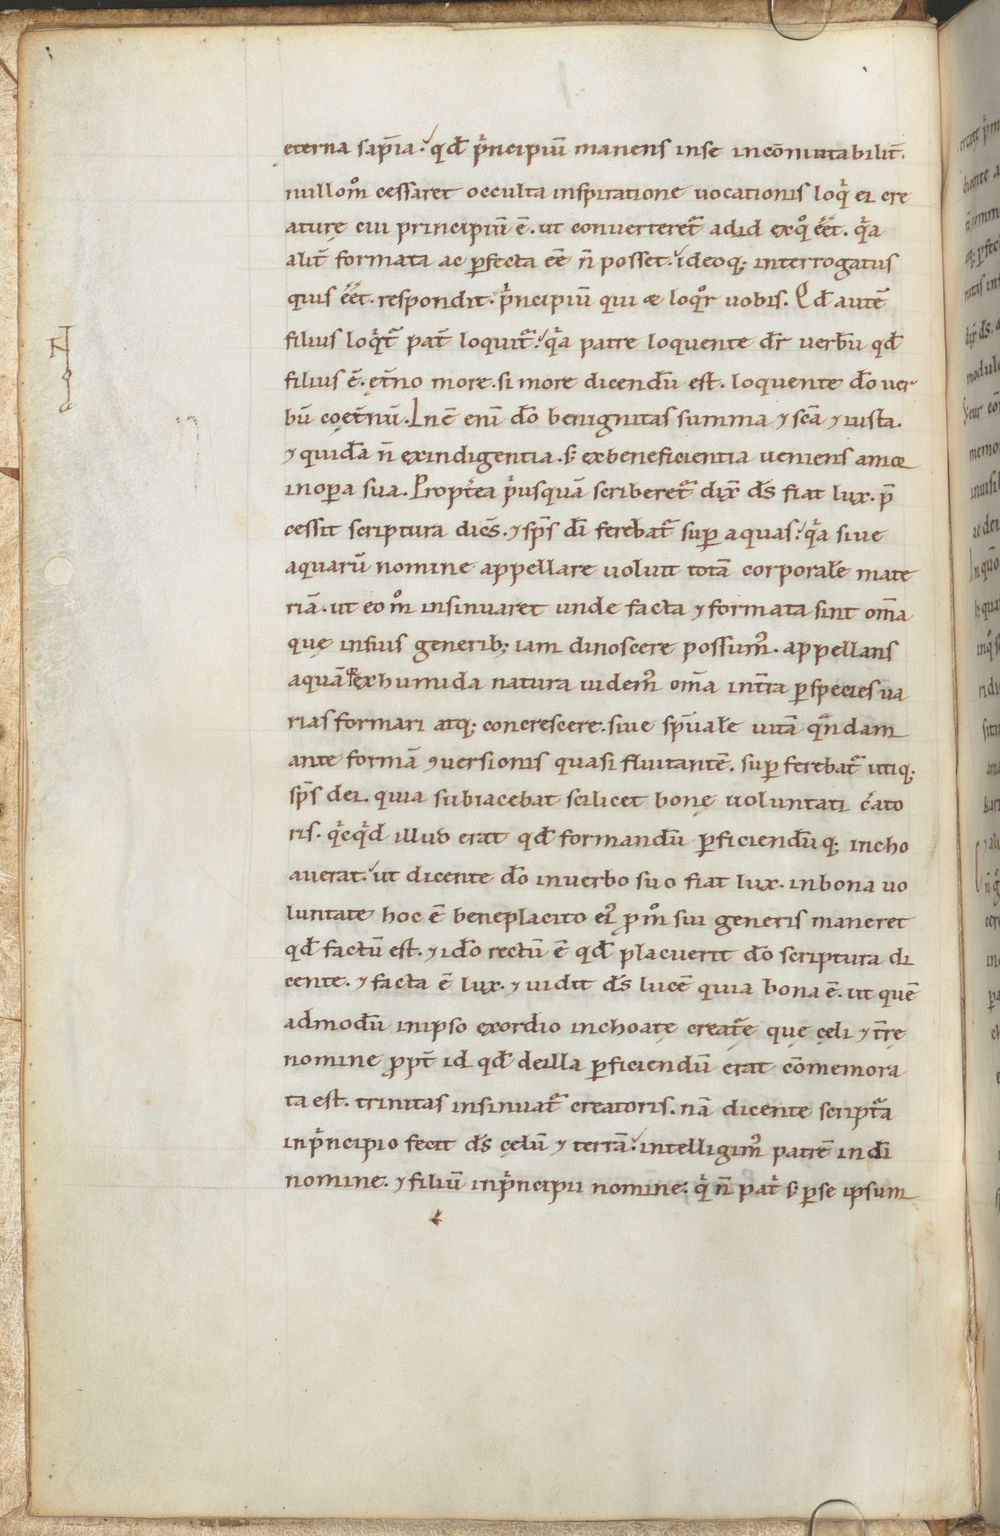 eterna sap̄ia. qđ pͥncipiū manens inse incōmutabilit̄.
nullom̊ cessaret occulta inspiratione uocationis loqͥ ei cre
aturę cui principiū ē. ut conuerteret᷑ adid exq̊ eēt. qͥa
alit̄ formata ac ꝑfecta eē n̄ posset. ideoq; interrogatus
quis eēt. respondit. pͥncipiū qui & loqͦr uobis. Qđ autē
filius loqͥt᷑ pat̄ loquit᷑. qͥa patre loquente dr̄ uerbū qđ
filius ē. et̄no more. si more dicendū est. loquente dō uer
bū coet̄nū. Inē enī dō benignitas summa ⁊ sc̄a ⁊ iusta.
⁊ quidā n̄ exindigentia. s; exbeneficientia ueniens amor
inoꝑa sua. Propt̄ea pͥusquā scriberet᷑ dix̄ ds̄ fiat lux. p̄
cessit scriptura dicēs. ⁊ sp̄s dī ferebat᷑ suꝑ aquas. qͥa siue
aquarū nomine appellare uoluit totā corporalē mate
riā. ut eo m̊ insinuaret unde facta ⁊ formata sint om̄a
quę insuis generib; iam dinoscere possum᷒. appellans
aquā qͥa exhumida natura uidem᷒ om̄a int̄ra ꝑspecies ua
rias formari atq; concrescere. siue sp̄ualē uitā qͣndam
ante formā ꝯuersionis quasi fluitantē. suꝑ ferebat᷑ utiq;
sp̄s dei. quia subiacebat scilicet bonę uoluntati c̄ato
ris. qͥcqͥd illud erat qđ formandū ꝑficiendūq; incho
auerat. ut dicente dō inuerbo suo fiat lux. inbona uo
luntate hoc ē beneplacito ei᷒ ꝓ m̊ sui generis maneret
qđ factū est. ⁊ idō rectū ē qđ placuerit dō scriptura di
cente. ⁊ facta ē lux. ⁊ uidit ds̄ lucē quia bona ē. ut quē
admodū inipso exordio inchoatę creat̄ę quę cęli ⁊ t̄rę
nomine ꝓpt̄ id qđ deilla ꝑficiendū erat cōmemora
ta est. trinitas insinuat᷑ creatoris. nā dicente script̄a
inpͥncipio fecit ds̄ cęlū ⁊ terrā. intelligim᷒ patrē in dī
nomine. ⁊ filiū inpͥncipii nomine. qͥ n̄ patͥ s; ꝑse ipsum